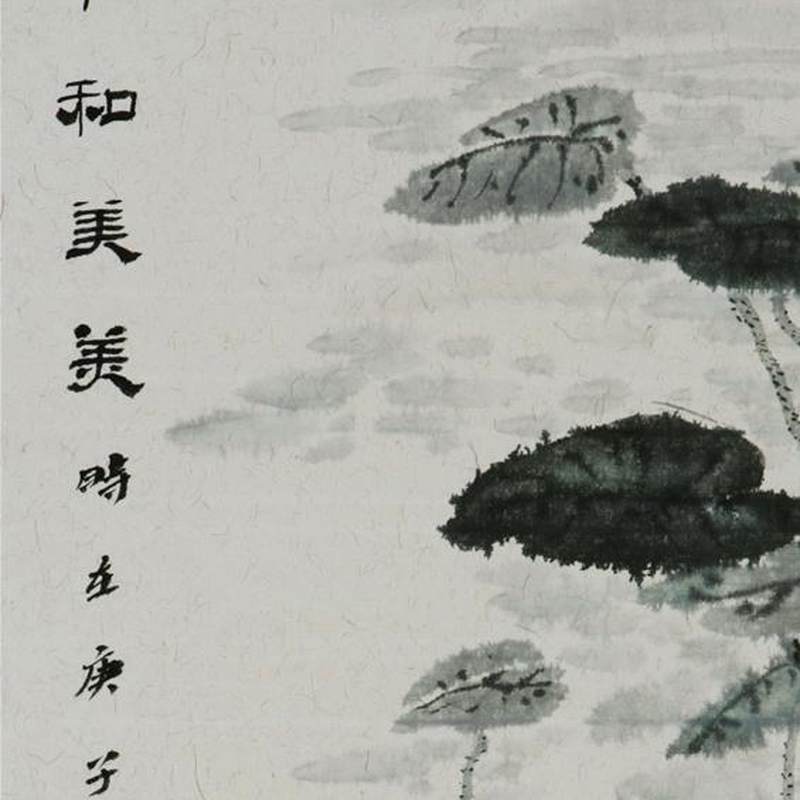 和美美時在庚子